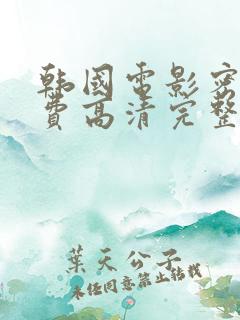 韩国电影密
费高清完整
葉天公子
未经同意禁止转载